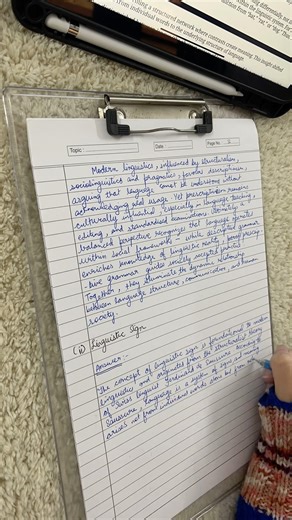 differentially, not b
within the linguistic system for
from "bat," "cat," or "dig." Thus
forming a structured network where contrasts create meaning. This insight shifted
from individual words to the underlying structure of language
Topic:
Date
Page No.
Modern linguistics, influenced by structuralism,
sociolinguistics and pragmatics, favours descriptivism,
arguing that language cannot be understood without
acknowledging real usage. Yet prescriptivism remains
culturally influential, especially in language teaching,
editing, and standardised examinations. Ultimately, a
balanced perspective recognises that language operates
within social frameworks - while descriptive grammar
enriches knowledge of linguistic reality, prescrip
-tive grammar guides socially accepted practice.
Together, they illuminate the dynamic relationship
between language structure, communication, and human
society.
(ii) Linguistic Sign
Answer:-
The concept of linguistic sign is foundational to modern
linguistics and originates from the structuralist theory
of Swiss linguist Ferdinand de Saussure.
Saussure, language is a system of signs, and meaning
arises not from individual words alone but from